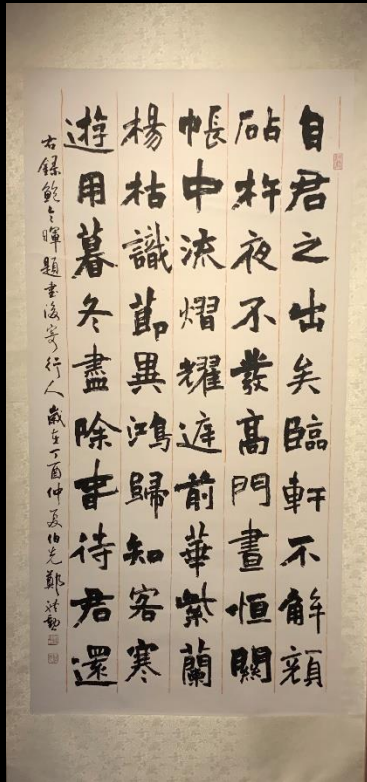 自君之出矣臨軒不解顏
砧杵夜不發高門晝恒關
帳中流熠耀庭前華紫蘭
楊枯識節異鴻歸知客寒
遊用暮冬盡除春待君還
右錄鮑令暉題書後寄行人歲在丁酉仲夏伯先鄭